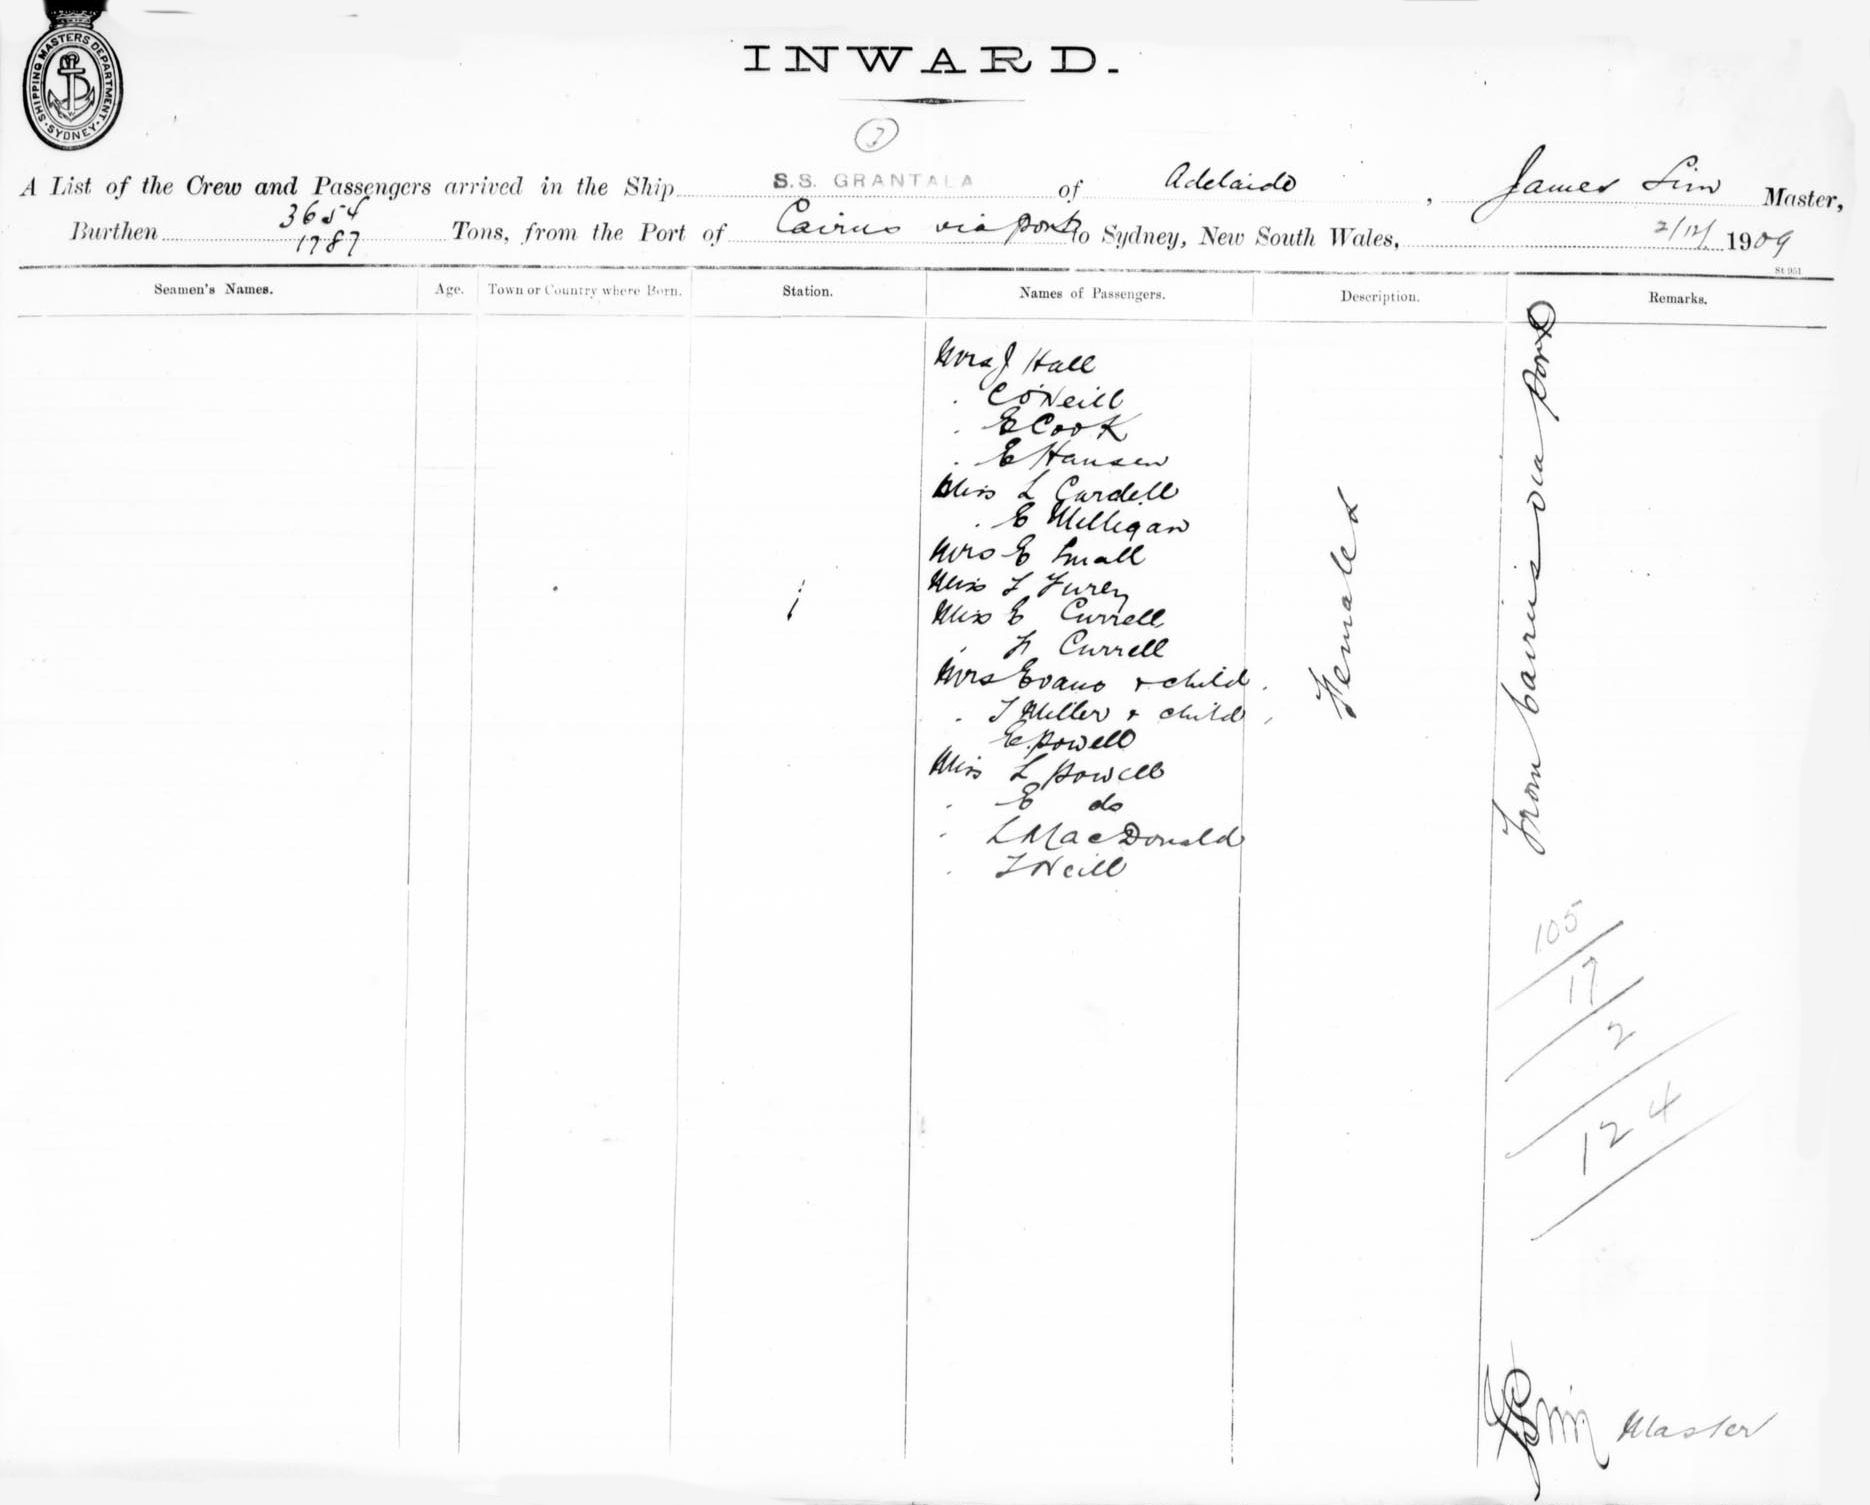 SHIPPING MASTERS DEPARTMENT · SYDNEY ·
INWARD.
3
A List of the Crew and Passengers arrived in the Ship S.S. GRANTALA of Adelaide, James Sim Master,
Burthen 3654 1787 Tons, from the Port of Cairns via ports to Sydney, New South Wales, 2/12/ 1909
St 951
Seamen's Names. Age. Town or Country where Born. Station. Names of Passengers. Description. Remarks.
Mrs J Hall
. C O'Neill
. E Cook
. E Hansen
Miss L Cardell
. E Milligan
Mrs E Small
Miss F Furey
Miss E Currell
. F Currell
Mrs Evans & child.
. T Miller & child,
E. Powell
Miss L Powell
. E do
. L MacDonald
. T Neill
Females
From Cairns via ports
105
17
2
124
Sim Master